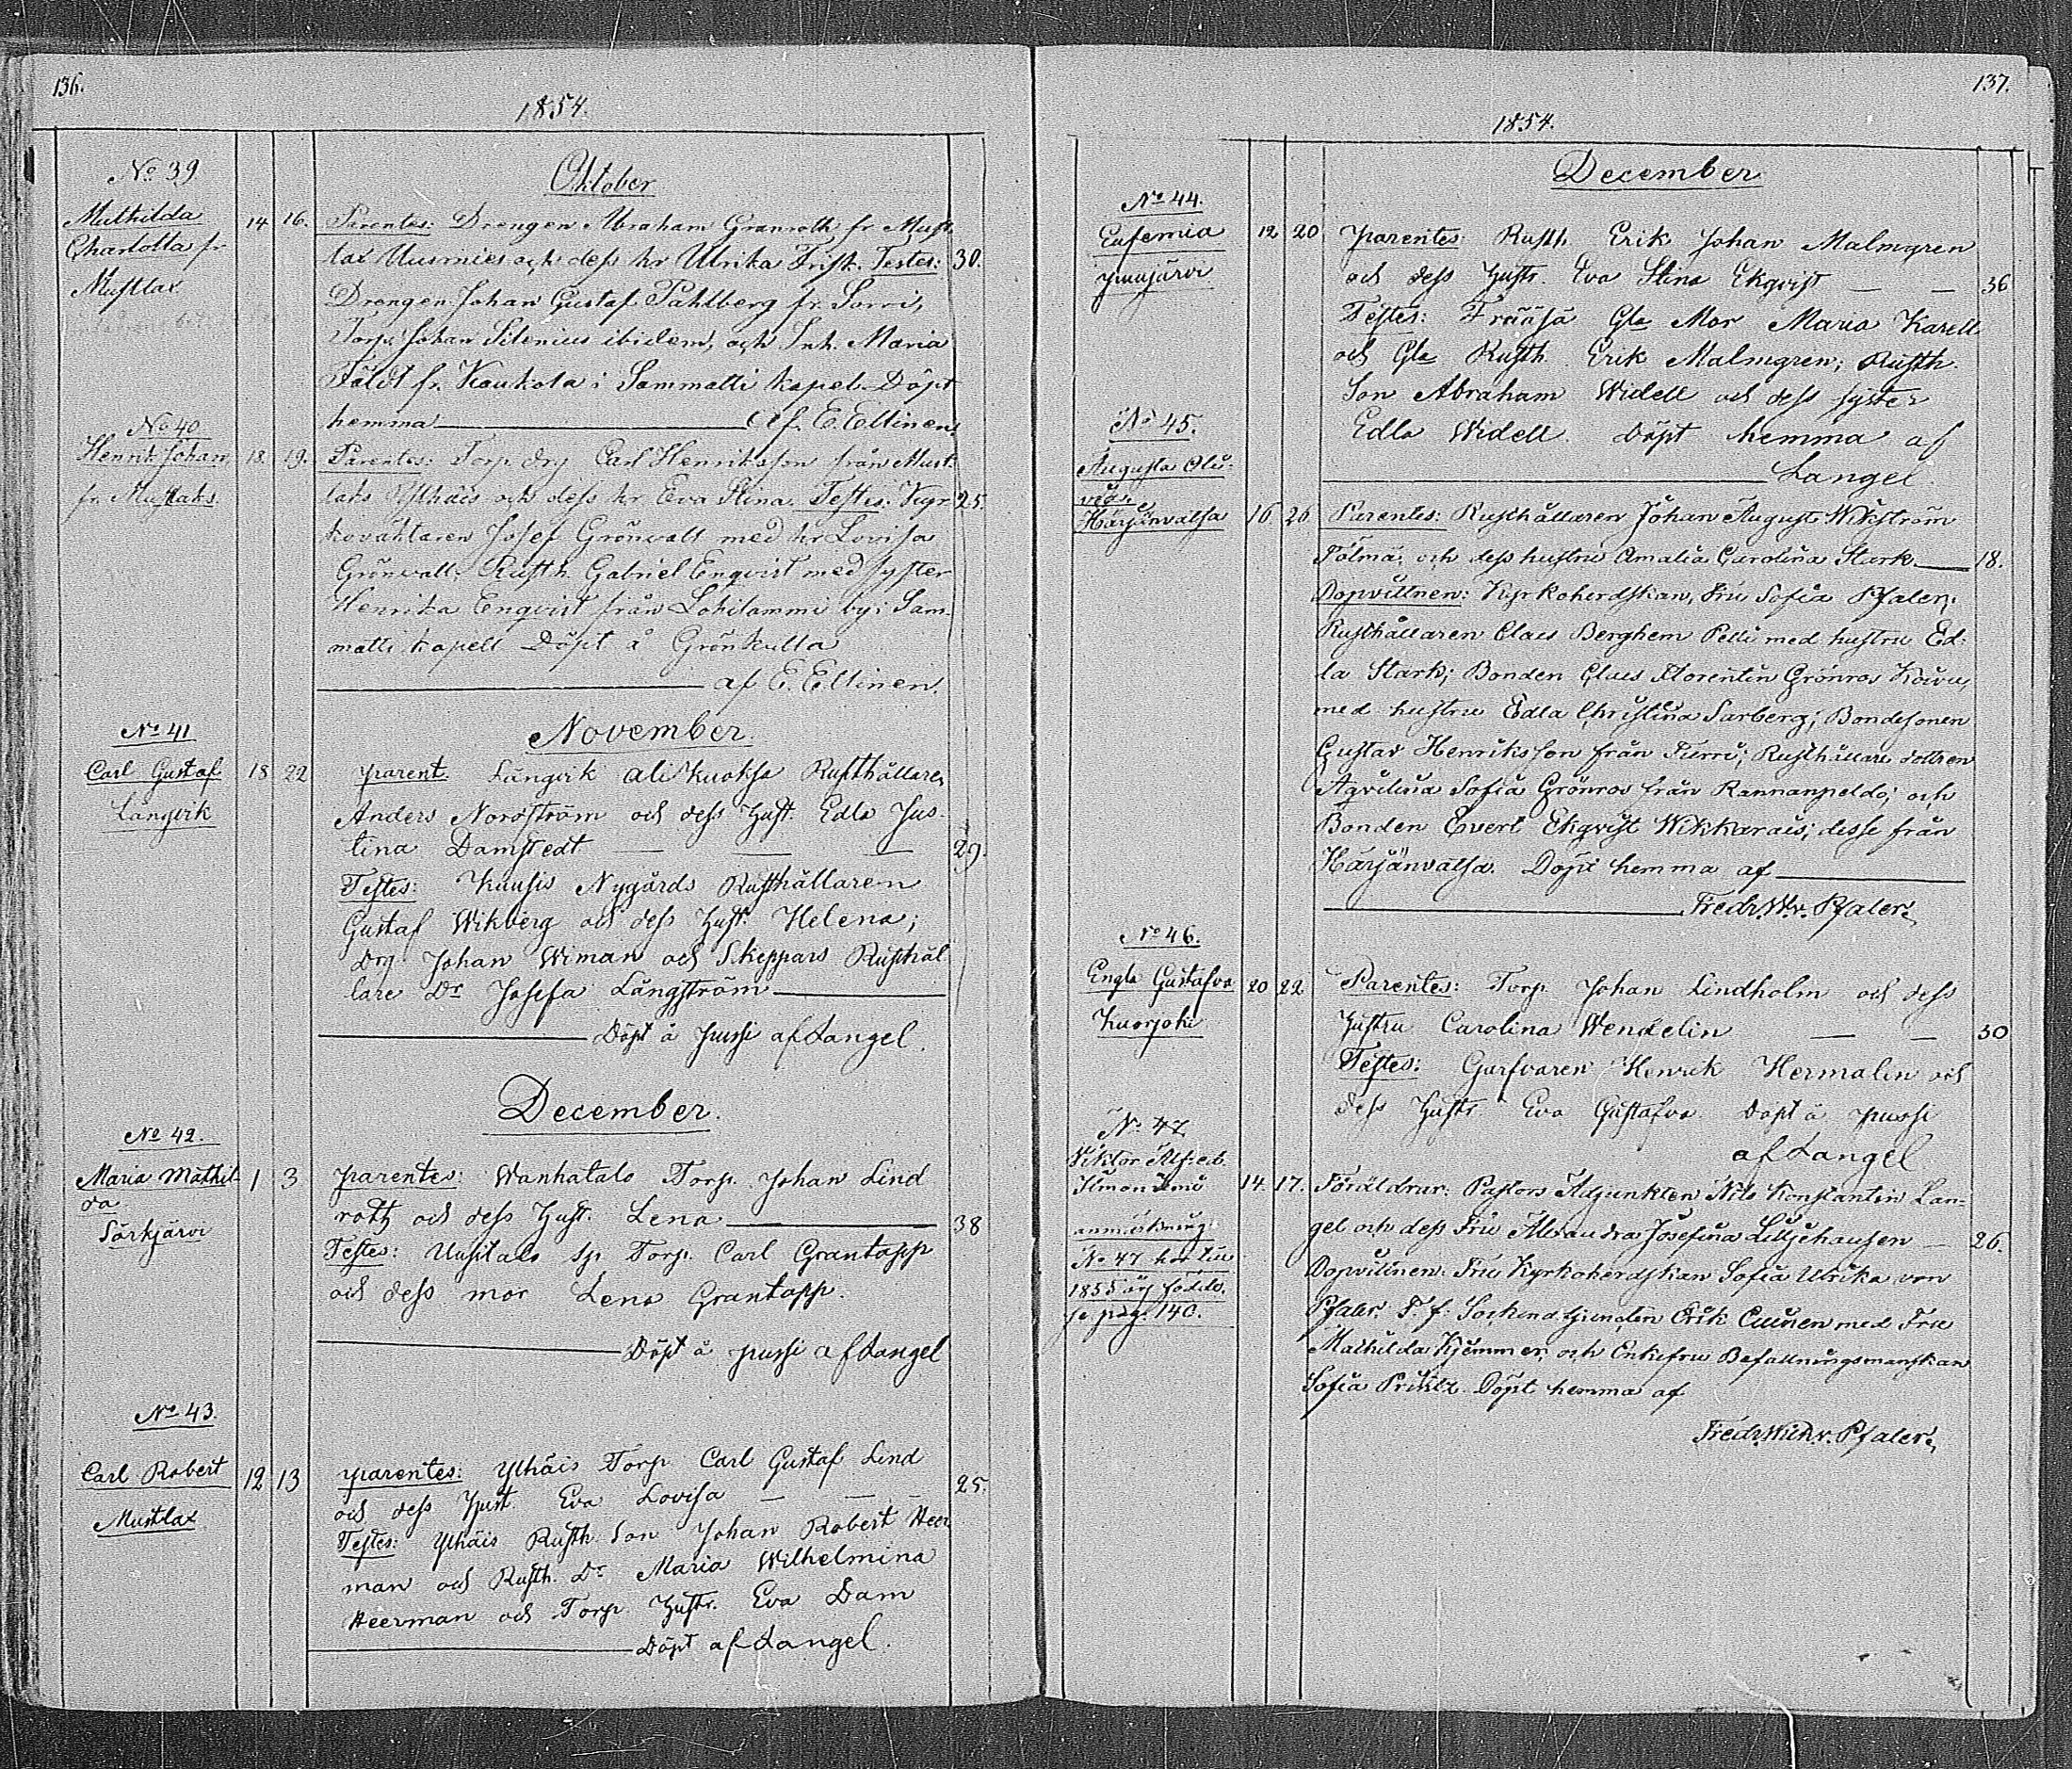 136.
1854.
No 39
Oktober
Mathilda
Charlotta fr
Mustlax
14 16. Parentes: Drengen Abraham Granroth fr Must-
lax Uusmies och dess hr Ulrika Frisk. Testes: 30.
Drengen Johan Gustaf Pahlberg fr. Sorri,
Torp. Johan Silenius ibidem, och Inh. Maria
Földt fr. Kaukola i Sammatti kapel. Döpt
hemma Af. E. Ellinen.
No 40
Henrik Johan,
fr. Mustlaks.
18. 19. Parentes: Torp. drg Carl Henriksson från Must-
laks Ylhäis och dess hr Eva Stina. Testes: Kyr- 25.
koväktaren Josef Grönvall med hr Lovisa
Grönvall; Rusth. Gabriel Enqvist med syster
Henrika Enqvist från Lohilammi by i Sam-
matti kapell Döpt å Grönkulla
af E. Ellinen.
November.
No 41
Carl Gustaf
Långvik
18 22 Parent. Långvik Ali Kuoksa Rusthållaren
Anders Nordström och dess Hust. Edla Jus-
tina Damstedt 29.
Testes: Kuusis Nygårds Rusthållaren
Gustaf Wikberg och dess Hust. Helena;
Drg. Johan Wiman och Skeppars Rusthål
lare Dr Josefa Långström
Döpt å Pussi af Langel.
December.
No 42.
Maria Mathil-
da
Särkjärvi
1 3 Parentes: Wanhatalo Torp. Johan Lind
roth och dess Hust. Lena 38
Testes: Uusitalo Torp. Carl Grantapp
och dess mor Lena Grantapp.
Döpt å Pussi af Langel
No 43.
Carl Robert
Mustlax
12 13 Parentes: Ylhäis Torp. Carl Gustaf Lind
och dess Hust. Eva Lovisa 25.
Testes: Ylhäis Rusth. Son Johan Robert Heer
man och Rusth. Dr Maria Wilhelmina
Heerman och Torp. Hustr. Eva Dam
Döpt af Langel.
137.
1854.
December
No 44.
Eufemia
12 20 Parentes Rusth. Erik Johan Malmgren
och dess Hustr. Eva Stina Ekqvist 36
Testes: Frääsä Gla Mor Maria Karell
och Gla Rusth. Erik Malmgren; Rusth.
Son Abraham Widell och dess syster
Edla Widell. Döpt hemma af
Langel.
No 45.
Augusta Oli-
via.
Härjänvatsa
16. 26 Parentes: Rusthållaren Johan August Wikström
Tölmä, och dess hustru Amalia Carolina Stark. 18.
Dopvittnen: Kyrkoherdskan, Fru Sofia Pfaler;
Rusthållaren Claes Berghem Pelli med hustru Ed-
la Stark; Bonden Claes Florentin Grönros Koivu,
med hustru Edla Christina Sarberg; Bondesonen
Gustav Henriksson från Firri; Rusthållare dottren
Aqvilina Sofia Grönros från Rannanpeldo; och
Bonden Evert Ekqvist Wikkarais; desse från
Härjänvatsa. Döpt hemma af
Fredr. W. v. Pfaler.
No 46.
Engla Gustafva
Kuorjoki
20 22 Parentes: Torp Johan Lindholm och dess
Hustru Carolina Wendelin 30
Testes: Garfvaren Henrik Hermalin och
dess Hustr Eva Gustafva Döpt å Pussi
af Langel
No 47
Viktor Alfred
anmärkning.
No 47 hör till
1855 års födda.
se pag. 140.
14. 17. Föräldrar: Pastors Adjunkten Nils Konstantin Lan-
gel och dess Fru Alexandra Josefina Lilljehausen 26.
Dopvittnen. Fru Kyrkoherdskan Sofia Ulrika von
Pfaler. T. f. Erik Cuinen med Fru
Mathilda Kjemmer, och Enkefru Befallningsmanskan
Sofia Döpt hemma af
Fredr. Wilh. v. Pfaler.